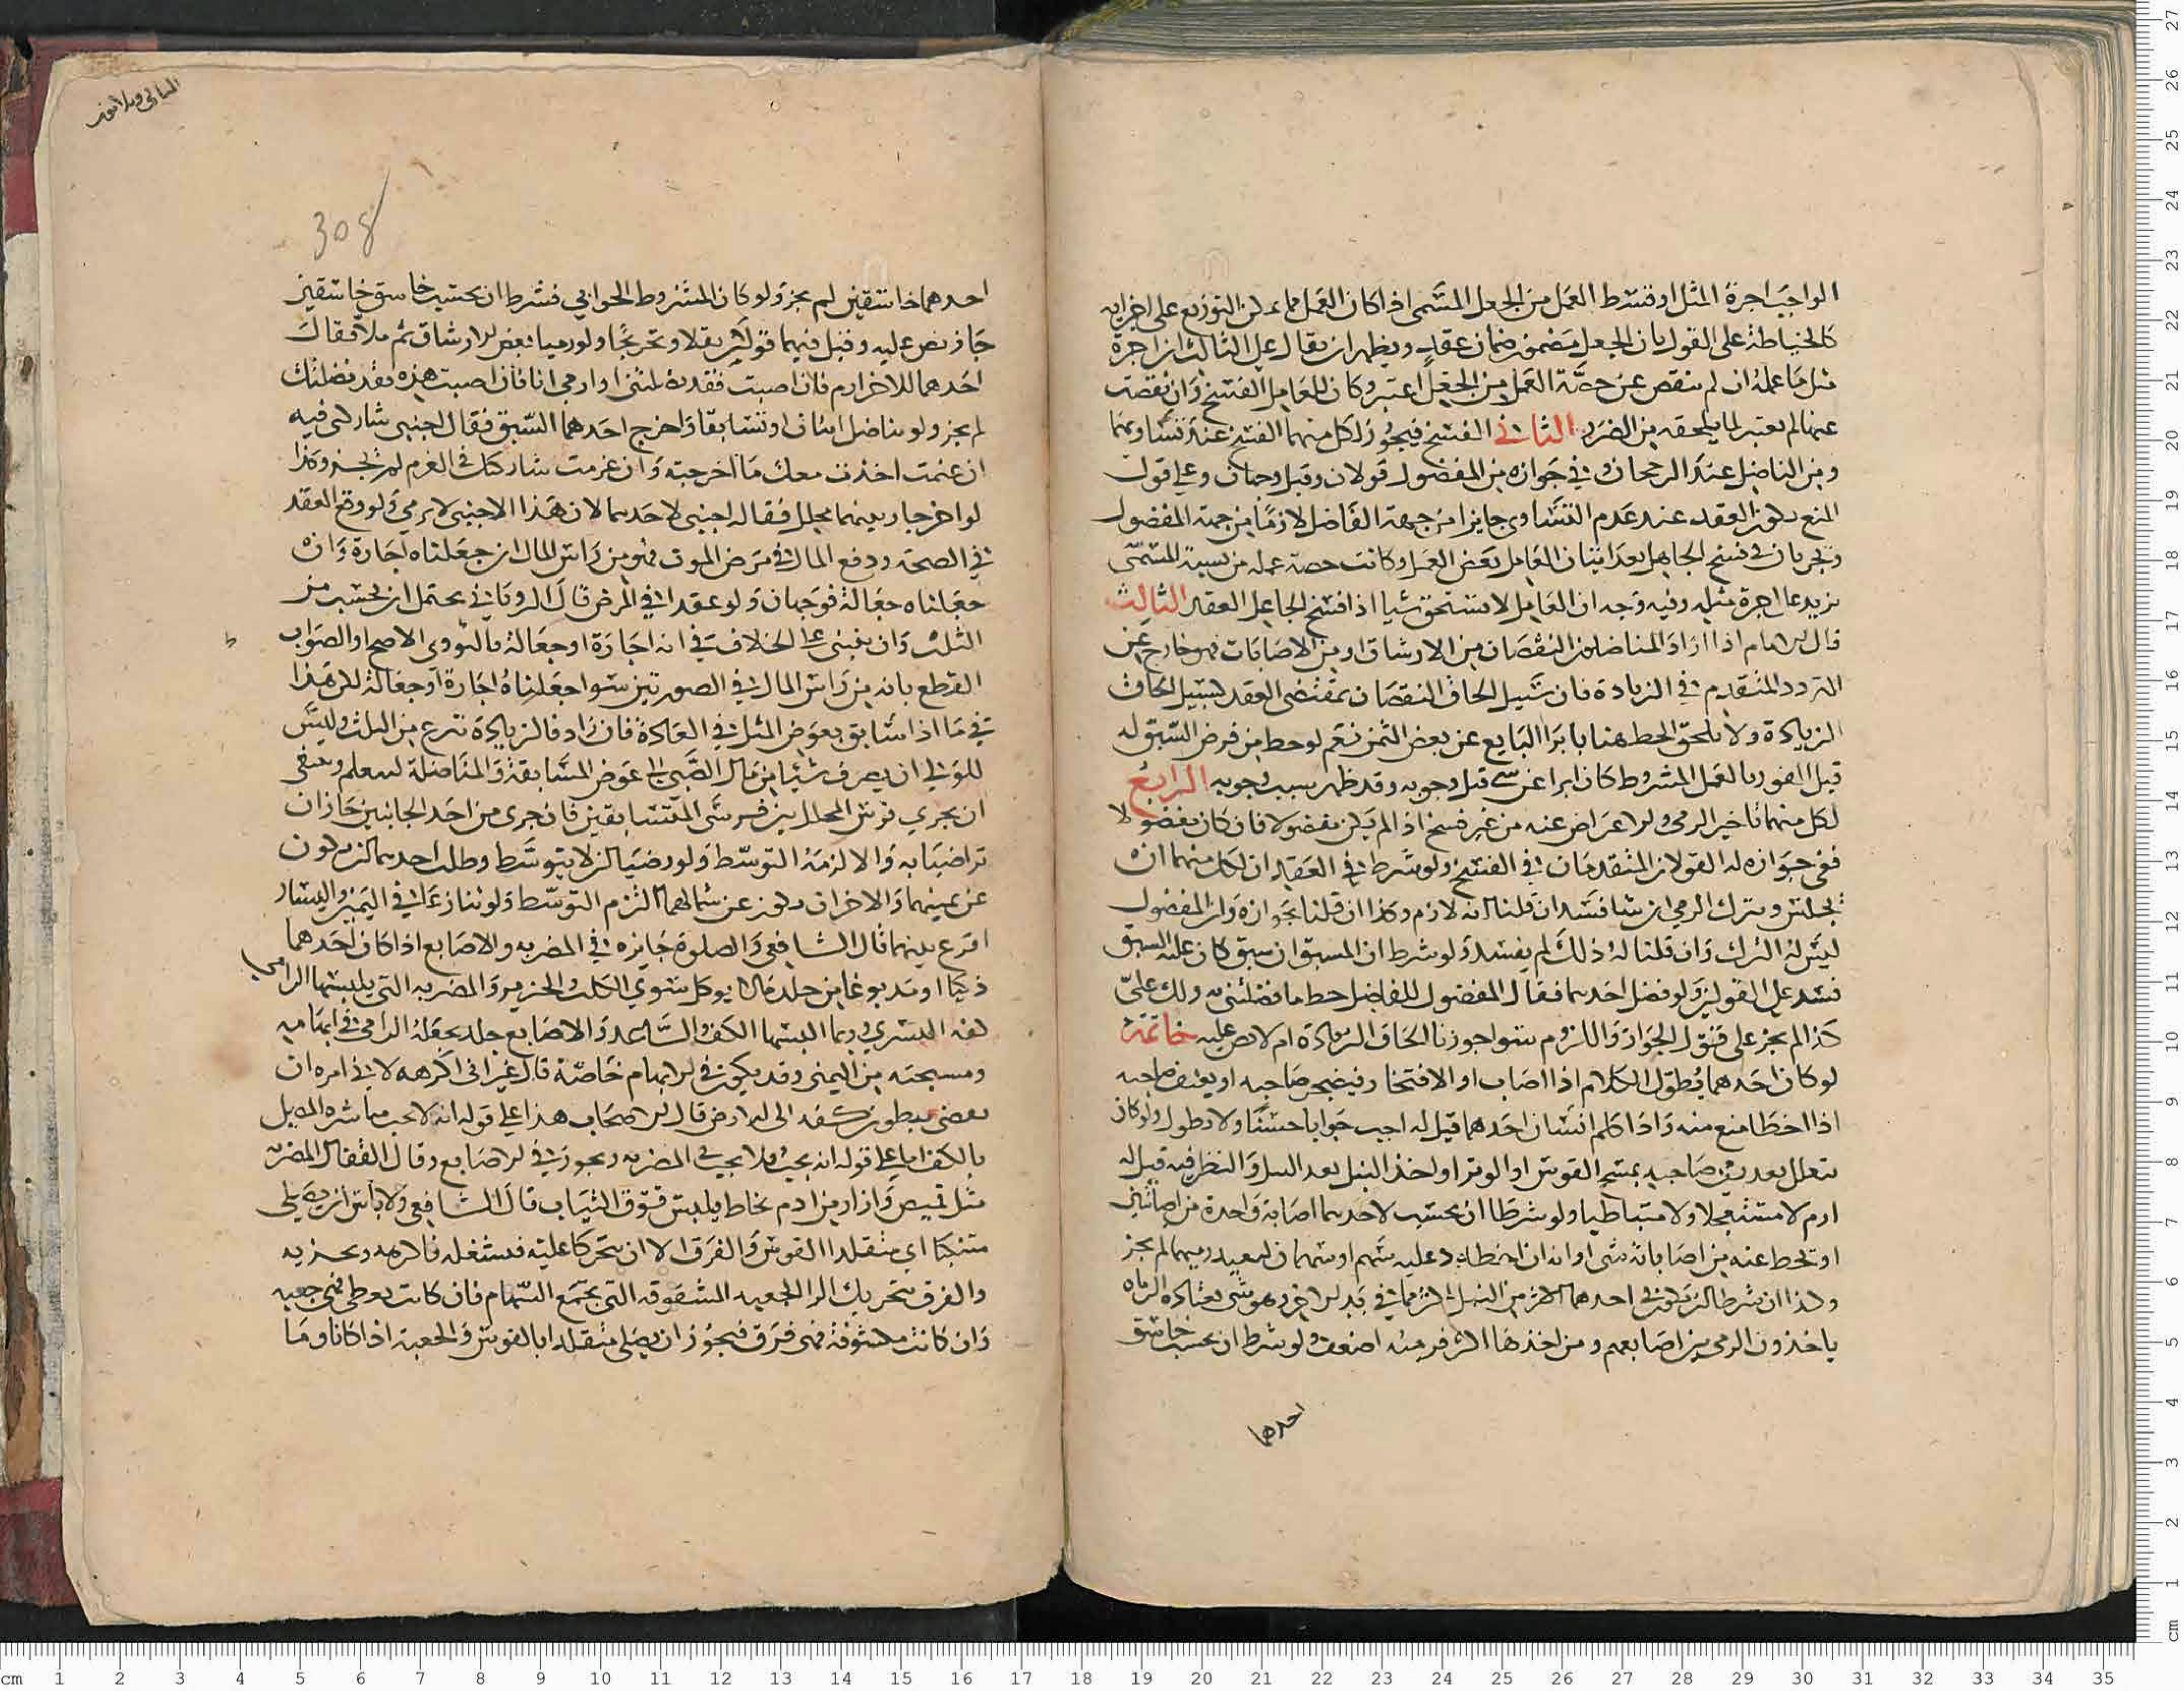 الواجب اجرة المثل او قسط العمل من الجعل المسمى اذا كان العمل مما يمكن التوزيع على اجزايه
كالخياطة على القول بان الجعل مضمون ضمان عقد ويظهر ان يقال على الثالث ان اجرة
مثل ما عمله ان لم ينقص عن حصة العمل من الجعل اعتبر وكان للعامل الفسخ وان نقصت
عنها لم يعتبر لما يلحقه من الضرر الثاني الفسخ فيجوز لكل منهما الفسخ عند تساويهما
ومن الفاضل عند الرجحان وفي جوازه من المفضول قولان وقيل وجهان وعلى قول
المنع يكون العقد عند عدم التساوي جايزا من جهة الفاضل لازما من جهة المفضول
ويجريان في فسخ الجاهل بعد اتيان العامل بعض العمل وكانت حصة عمله من نسبة المسمى
يزيد على اجرة مثله وفيه وجه ان العامل لا يستحق شيا اذا فسخ الجاعل العقد الثالث
قال الامام اذا اراد المناضلون النقصان من الارشاق او من الاصابات فهو خارج عن
التردد المتقدم في الزيادة فان سبيل الحاق النقصان بمقتضى العقد كسبيل الحاق
الزيادة ولا يلحق الحط هنا بابراء البايع عن بعض الثمن نعم لو حط من فرض السبق له
قبل الفوز بالعمل المشروط كان ابراء عن شي قبل وجوبه وقد ظهر سبب وجوبه الرابع
لكل منهما تاخير الرمي والاعراض عنه من غير فسخ اذا لم يكن مفضولا فان كان مفضولا
ففي جوازه له القولان المتقدمان في الفسخ ولو شرط في العقد ان لكل منهما ان
يجلس ويترك الرمي ان شا فسد ان قلنا انه لازم وكذا ان قلنا بجوازه وان المفضول
ليس له الترك وان قلنا له ذلك لم يفسد ولو شرط ان المسبق ان سبق كان عليه السبق
فسد على القولين ولو فضل احدهما فقال المفضول للفاضل حط ما فضلتني به ولك علي
كذا لم يجز على قول الجواز واللزوم سوا جوزنا الحاق الزيادة ام لا نص عليه خاتمة
لو كان احدهما يطول الكلام اذا اصاب او الافتخار فيضجر صاحبه او يعنف صاحبه
اذا اخطا منع منه واذا كلم انسان احدهما قيل له اجب جوابا حسنا ولا تطول ولو كان
يتعلل بعد رمي صاحبه بمسح القوس او الوتر او اخذ النبل بعد النبل والنظر فيه قيل له
ارم لا مستعجلا ولا متباطيا ولو شرطا ان يحتسب لاحدهما اصابة واحدة من اصابتين
او يحط عنه من اصاباته شي او انه ان اخطا رد عليه سهم او سهمان ليعيد رميهما لم يجز
وكذا ان شرط ان يكون في احدهما اكثر من النبل اكثر مما في يد الاخر وهو شي يعتاده الرماة
ياخذون الرمي بين اصابعهم ومن اخذها اكثر فرميه اضعف ولو شرط ان يحسب خاسق
احدهما
الثاني وبلا عوض
308
احدهما خاسقين لم يجز ولو كان المشروط الحوابي فشرط ان يحتسب خاسق خاسقين
جاز نص عليه وقيل فيهما قولان نقلا وتخريجا ولو رميا بعض الارشاق ثم ملا فقال
احدهما للاخر ارم فان اصبت فقد نضلتني او ارمي انا فان اصبت هذه فقد نضلتك
لم يجز ولو تناضل اثنان او تسابقا واخرج احدهما السبق فقال اجنبي شاركني فيه
ان غنمت اخذت معك ما اخرجته وان غرمت شاركتك في الغرم لم يجز وكذا
لو اخرجا وبينهما محلل فقال اجنبي لاحدهما لان هذا الاجنبي لا يرمي ولو وقع العقد
في الصحة ودفع المال في مرض الموت فهو من راس المال ان جعلناه اجارة وان
جعلناه جعالة فوجهان ولو عقدا في المرض قال الروياني يحتمل ان يحتسب من
الثلث وان يبنى على الخلاف في انه اجارة او جعالة قال النووي الاصح او الصواب
القطع بانه من راس المال في الصورتين سوا جعلناه اجارة او جعالة لكن هذا
في ما اذا سابق بعوض المثل في العادة فان زاد فالزيادة تبرع من الثلث وليس
للولي ان يصرف شيئا من مال الصبي الى عوض المسابقة والمناضلة ليتعلم وينبغي
ان يجري فرس المحلل بين فرسي المتسابقين فان جرى من احد الجانبين جاز ان
تراضيا به والا لزمه التوسط ولو رضيا ان لا يتوسط وطلب احدهما ان يكون
عن يمينهما والاخر ان يكون عن شمالهما الزم التوسط ولو تنازعا في اليمين واليسار
اقرع بينهما قال الشافعي والصلوة جايزة في المضربة والاصابع اذا كان احدهما
ذكيا او مدبوغا من جلد ما لا يوكل سوى الكلب والخنزير والمضربة التي يلبسها الرامي
كفه اليسرى وربما البسها الكف والساعد والاصابع جلد يجعله الرامي في ابهامه
ومسبحته من اليمنى وقد يكون في الابهام خاصة قال غير اني اكرهه لاني امره ان
يفضي ببطون كفه الى الارض قال الاصحاب هذا على قوله انه لا يجب مباشرة المصلى
بالكف اما على قوله انه يجب فلا يجب في المضربة ويجوز في الاصابع وقال القفال المضربة
مثل قميص وازار من ادم يخاط يلبس فوق الثياب قال الشافعي ولا باس ان يصلي
متنكبا اي متقلدا القوس والقرن الا ان يتحركا عليه فيشغله فاكرهه ويجزيه
والقرن بتحريك الرا الجعبة المشقوقة التي تجمع السهام فان كانت بغطا فهي جعبة
وان كانت مكشوفة فهي قرن فيجوز ان يصلي متقلدا بالقوس والجعبة اذا كانا وما